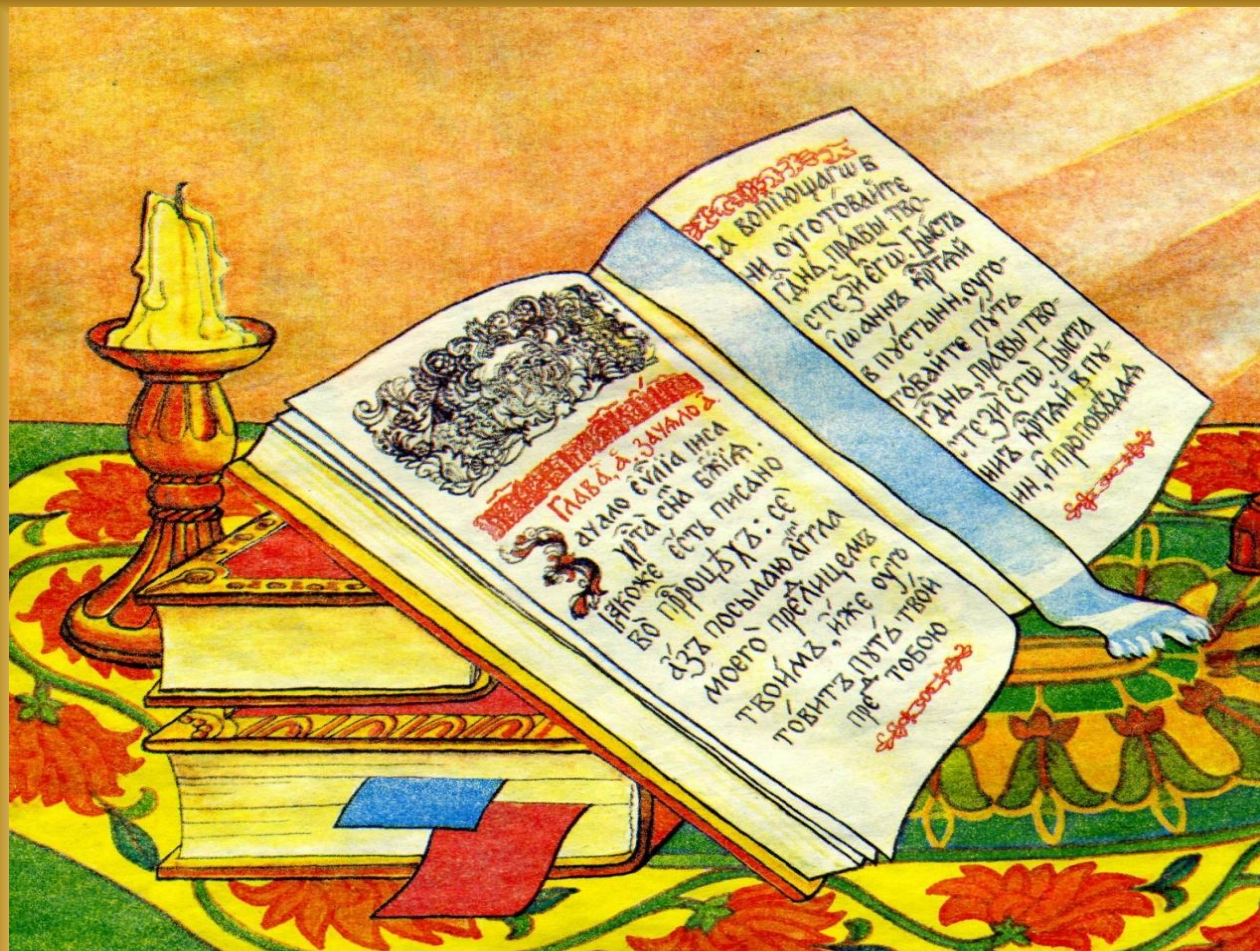 Глава̀, а҃, зачало а҃.
Зачало є҆ѵⷢ҇лїа і҆и҃са
хрⷭ҇та̀ сн҃а бж҃їѧ.
ꙗ҆коже є҆сть писано
во прⷪ҇роцѣхъ: се
а҆́зъ посылаю а҆́гг҃ла
моегѡ̀ пред̾ лицемъ
твои́мъ, и҆́же оу҆го
то́витъ пꙋть тво́й
пред̾ тобою
са вопїющагѡ в
ни оу҆гото́ва́йте
гдⷭ҇нь, пра́вы тво-
стезѝ є҆гѡ̀. Бы́сть
І҆ѡаннъ крⷭ҇тѧй
в пꙋ́стыни, оуго-
то́вайте пꙋ́ть
гдⷭ҇нь, пра́вы тво-
стезѝ є҆гѡ̀. Бы́сть
ннъ крⷭ҇тѧй в пꙋ-
ни, и҆ проповѣдаѧ